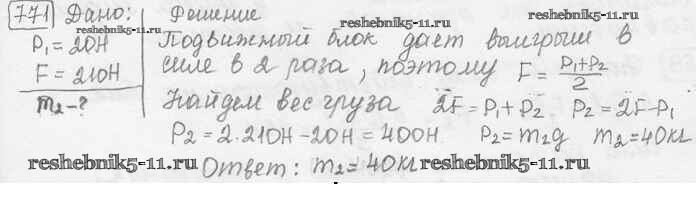 771 Дано: Решение
reshebnik5-11.ru
reshebnik5-11.ru
P₁ = 20Н Подвижный блок дает выигрыш в
F = 210Н силе в 2 раза, поэтому F = (P₁+P₂)/2
m₂ - ? Найдем вес груза 2F = P₁ + P₂ P₂ = 2F - P₁
P₂ = 2·210Н - 20Н = 400Н P₂ = m₂g m₂ = 40кг
reshebnik5-11.ru Ответ: m₂ = 40кг reshebnik5-11.ru